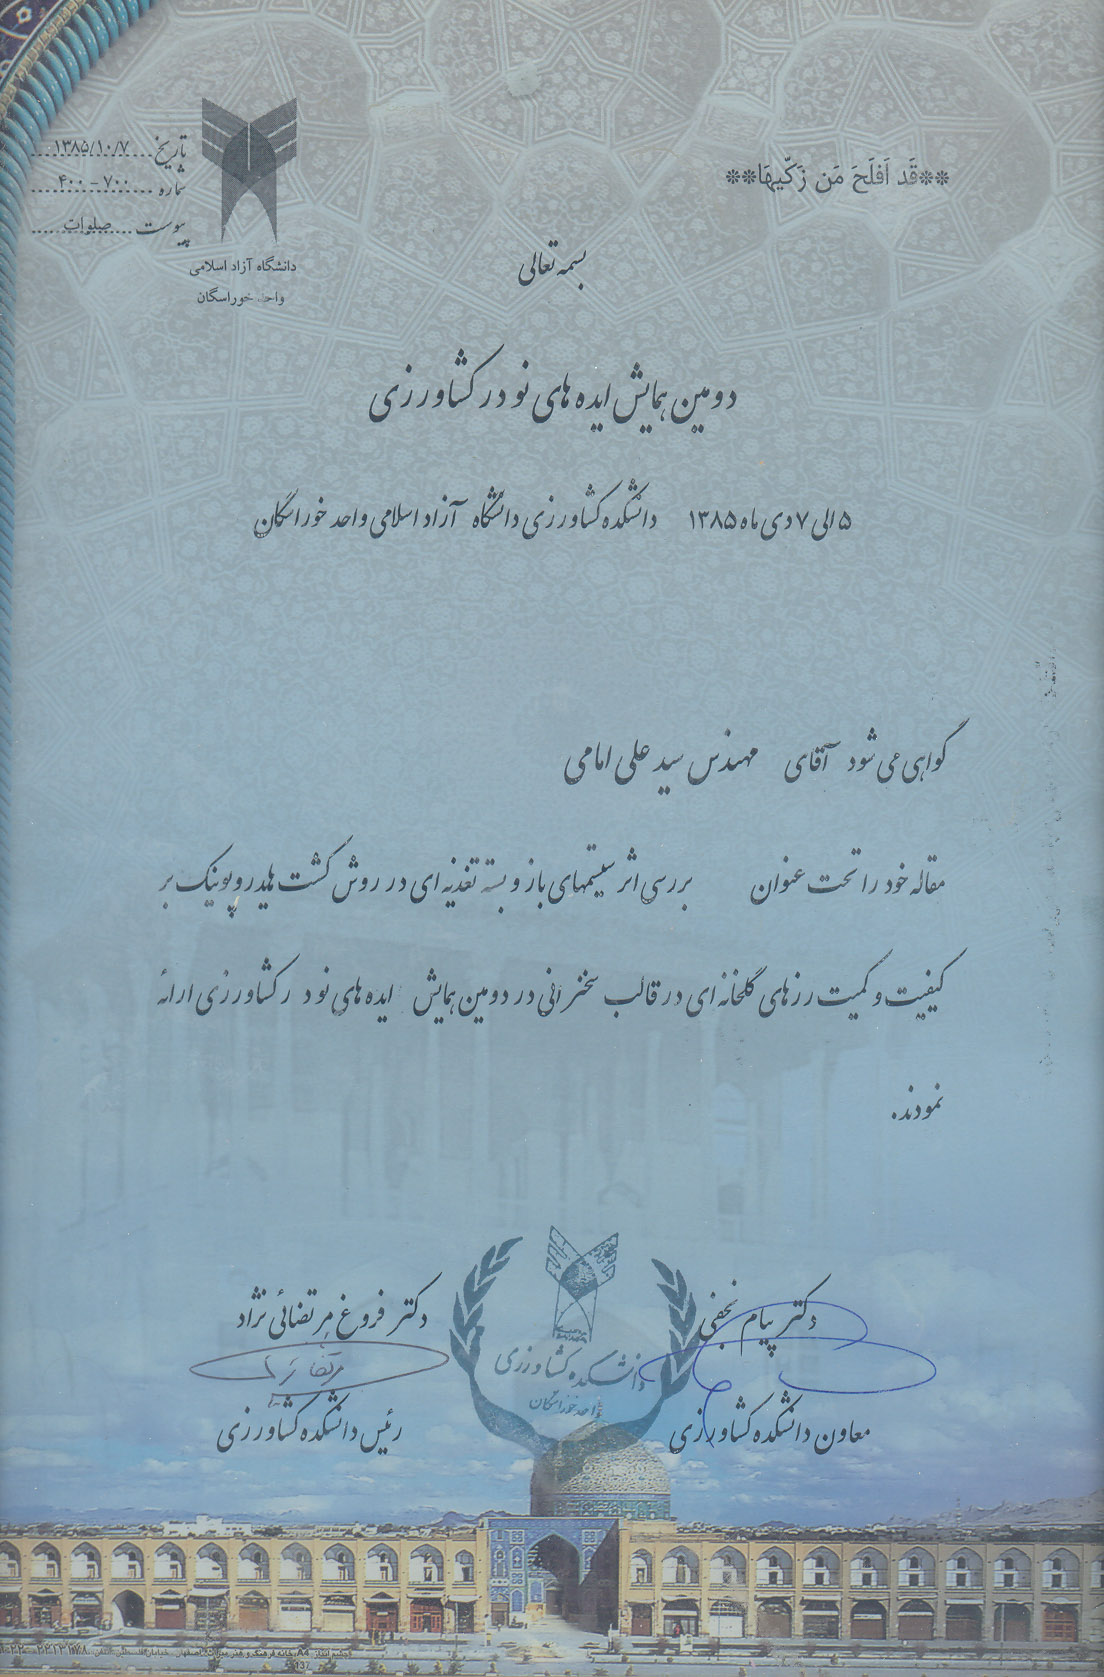 **قَد اَفلَحَ مَن زَكّیهَا**
تاریخ ۱۳۸۵/۱۰/۷
شماره ۷۰۰ - ۴۰۰
پیوست صلوات
دانشگاه آزاد اسلامی
واحد خوراسگان
بسمه تعالی
دومین همایش ایده های نو در کشاورزی
۵ الی ۷ دی ماه ۱۳۸۵ دانشکده کشاورزی دانشگاه آزاد اسلامی واحد خوراسگان
گواهی می شود آقای مهندس سید علی امامی
مقاله خود را تحت عنوان بررسی اثر سیستمهای باز و بسته تغذیه ای در روش کشت هیدروپونیک بر
کیفیت و کمیت رزهای گلخانه ای در قالب سخنرانی در دومین همایش ایده های نو در کشاورزی ارائه
نمودند.
دکتر پیام نجفی
معاون دانشکده کشاورزی
دکتر فروغ مرتضائی نژاد
رئیس دانشکده کشاورزی
دانشکده کشاورزی
واحد خوراسگان